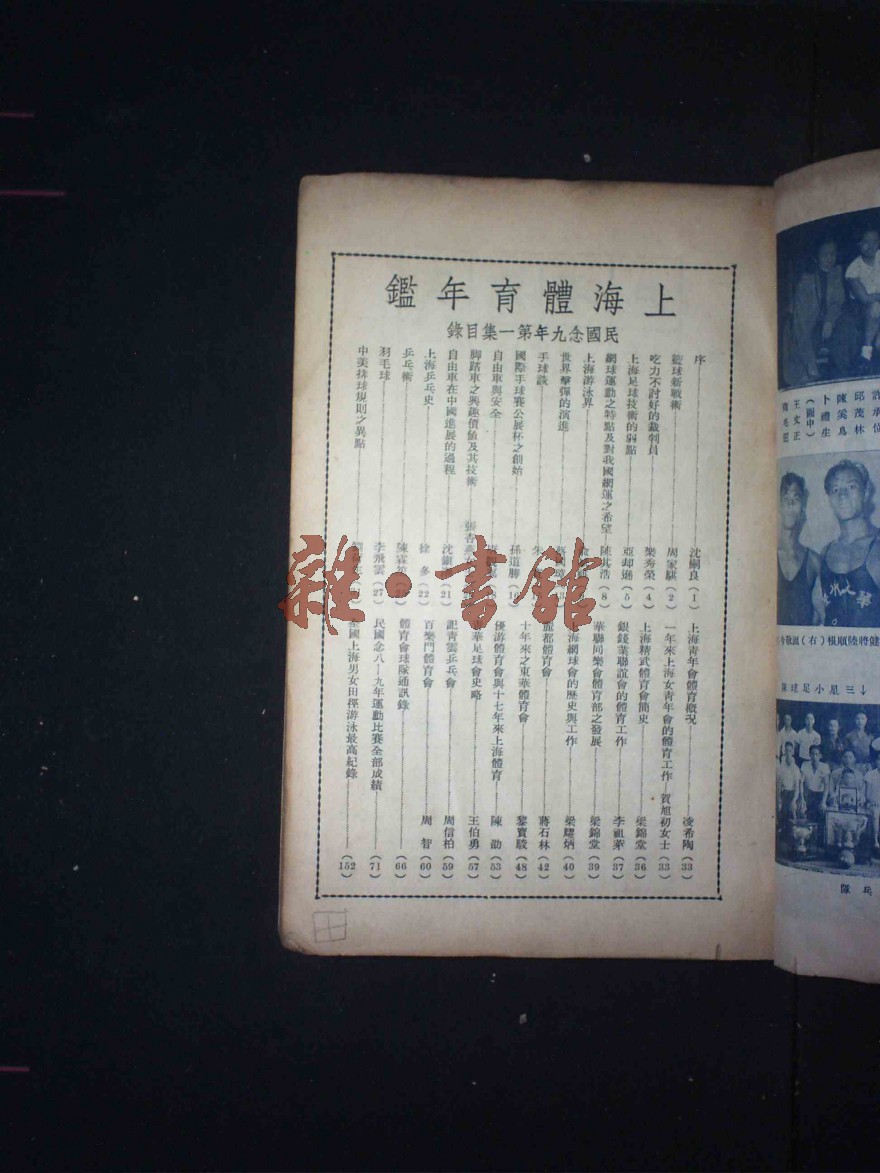 上海體育年鑑
民國念九年第一集目錄
序 沈嗣良(1)
籃球新戰術 周家騏(2)
吃力不討好的裁判員 樂秀榮(4)
上海足球技術的弱點 亞却遜(5)
網球運動之特點及對我國網運之希望 陳其浩(8)
上海游泳界
世界擊彈的演進
手球談
國際手球賽公展杯之創始 孫道勝
自由車與安全
脚踏車之興趣價値及其技術
自由車在中國進展的過程 沈 (21)
上海乒乓史 徐多(22)
乒乓術 陳霖
羽毛球 李飛雲(27)
中美排球規則之異點
上海靑年會體育概況 凌希陶(33)
一年來上海女靑年會的體育工作 賀旭初女士(33)
上海精武體育會簡史 梁錦堂(36)
銀錢業聯誼會的體育工作 李祖莘(37)
華聯同樂會體育部之發展 梁錦堂(39)
上海網球會的歷史與工作 梁耀炳(40)
麗都體育會 蔣石林(42)
十年來之東華體育會 黎寶駿(48)
優游體育會與十七年來上海體育 陳劭(53)
華足球會史略 王伯勇(57)
記靑雲乒乓會 周信柏(59)
百樂門體育會 周智(60)
體育會球隊通訊錄 (66)
民國念八—九年運動比賽全部成績 (71)
全國上海男女田徑游泳最高紀錄 (152)
雜·書館
邱茂林
陳奚鳥
卜禮生
(圖中)
王文正
健將陸順根(右)
↓三星小足球隊
乓隊